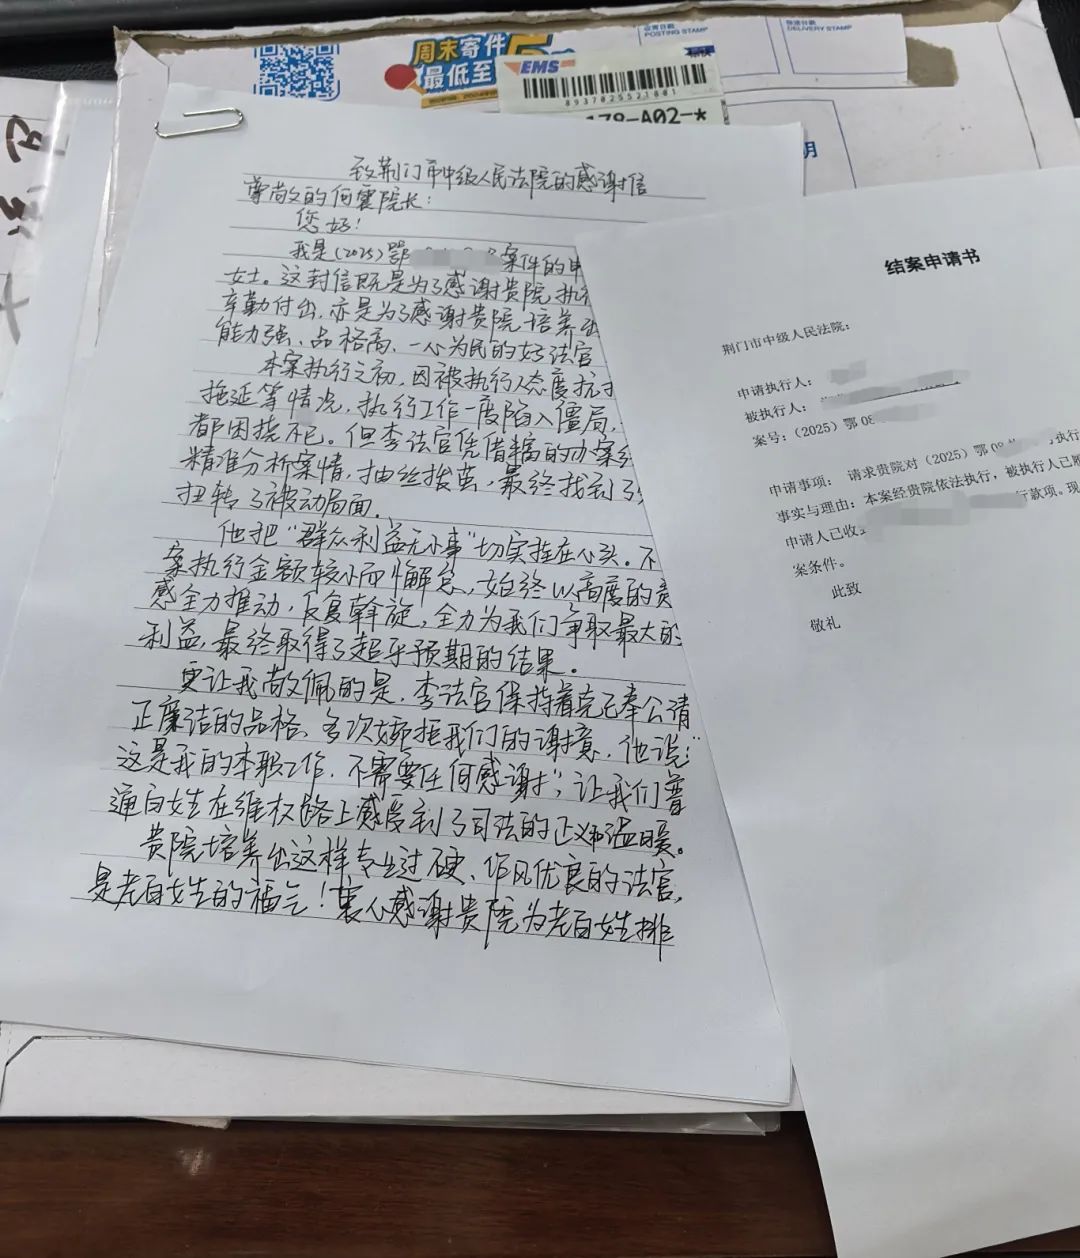 周末寄件
最低至5
EMS
8937025521801
178-A02-*
POSTING STAMP
DELIVERY STAMP
致荆门市中级人民法院的感谢信
尊敬的何震院长:
您好!
我是(2025)鄂 案件的申
女士。这封信既是为了感谢贵院执行
辛勤付出,亦是为了感谢贵院培养出
能力强、品格高、一心为民的好法官
本案执行之初,因被执行人态度抗拒
拖延等情况,执行工作一度陷入僵局,
都困扰不已。但李法官凭借丰富的办案经
精准分析案情,抽丝拨茧,最终找到了
扭转了被动局面。
他把“群众利益无小事”切实挂在心头。不
案执行金额较小而懈怠,始终以高度的责
感全力推动,反复斡旋,全力为我们争取最大的
利益,最终取得了超乎预期的结果。
更让我敬佩的是,李法官保持着克己奉公清
正廉洁的品格、多次婉拒我们的谢意,他说:“
这是我的本职工作,不需要任何感谢”,让我们普
通百姓在维权路上感受到了司法的正义和温暖。
贵院培养出这样专业过硬、作风优良的法官,
是老百姓的福气!衷心感谢贵院为老百姓排
结案申请书
荆门市中级人民法院:
申请执行人:
被执行人:
案号:(2025)鄂08
申请事项:请求贵院对(2025)鄂08 执行
事实与理由:本案经贵院依法执行,被执行人已
申请人已收 行款项。现
案条件。
此致
敬礼